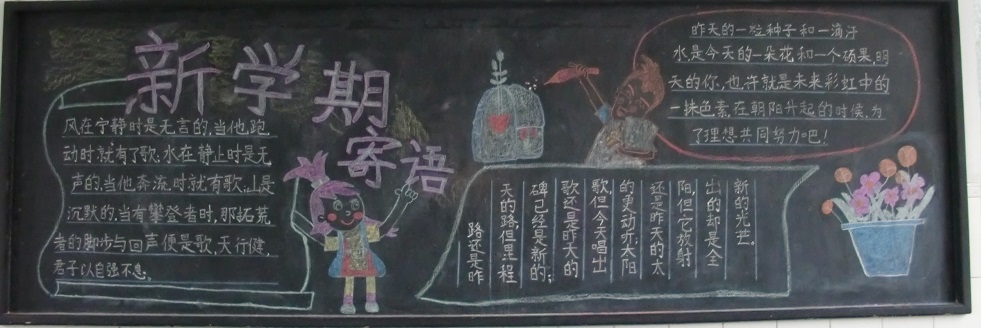 新学期寄语
风在宁静时是无言的,当他,跑
动时就有了歌;水在静止时是无
声的,当他,奔流,时就有歌;山是
沉默的,当有攀登者时,那拓荒
者的脚步与回声便是歌,天行健,
君子以自强不息;
路还是昨
天的路,但里程
碑已经是新的;
歌还是昨天的
歌,但今天唱出
的更动听;太阳
还是昨天的太
阳,但它放射
出的却是全
新的光芒.
昨天的一粒种子和一滴汗
水是今天的一朵花和一个硕果,明
天的你,也许就是未来彩虹中的
一抹色素,在朝阳升起的时候,为
了理想共同努力吧!